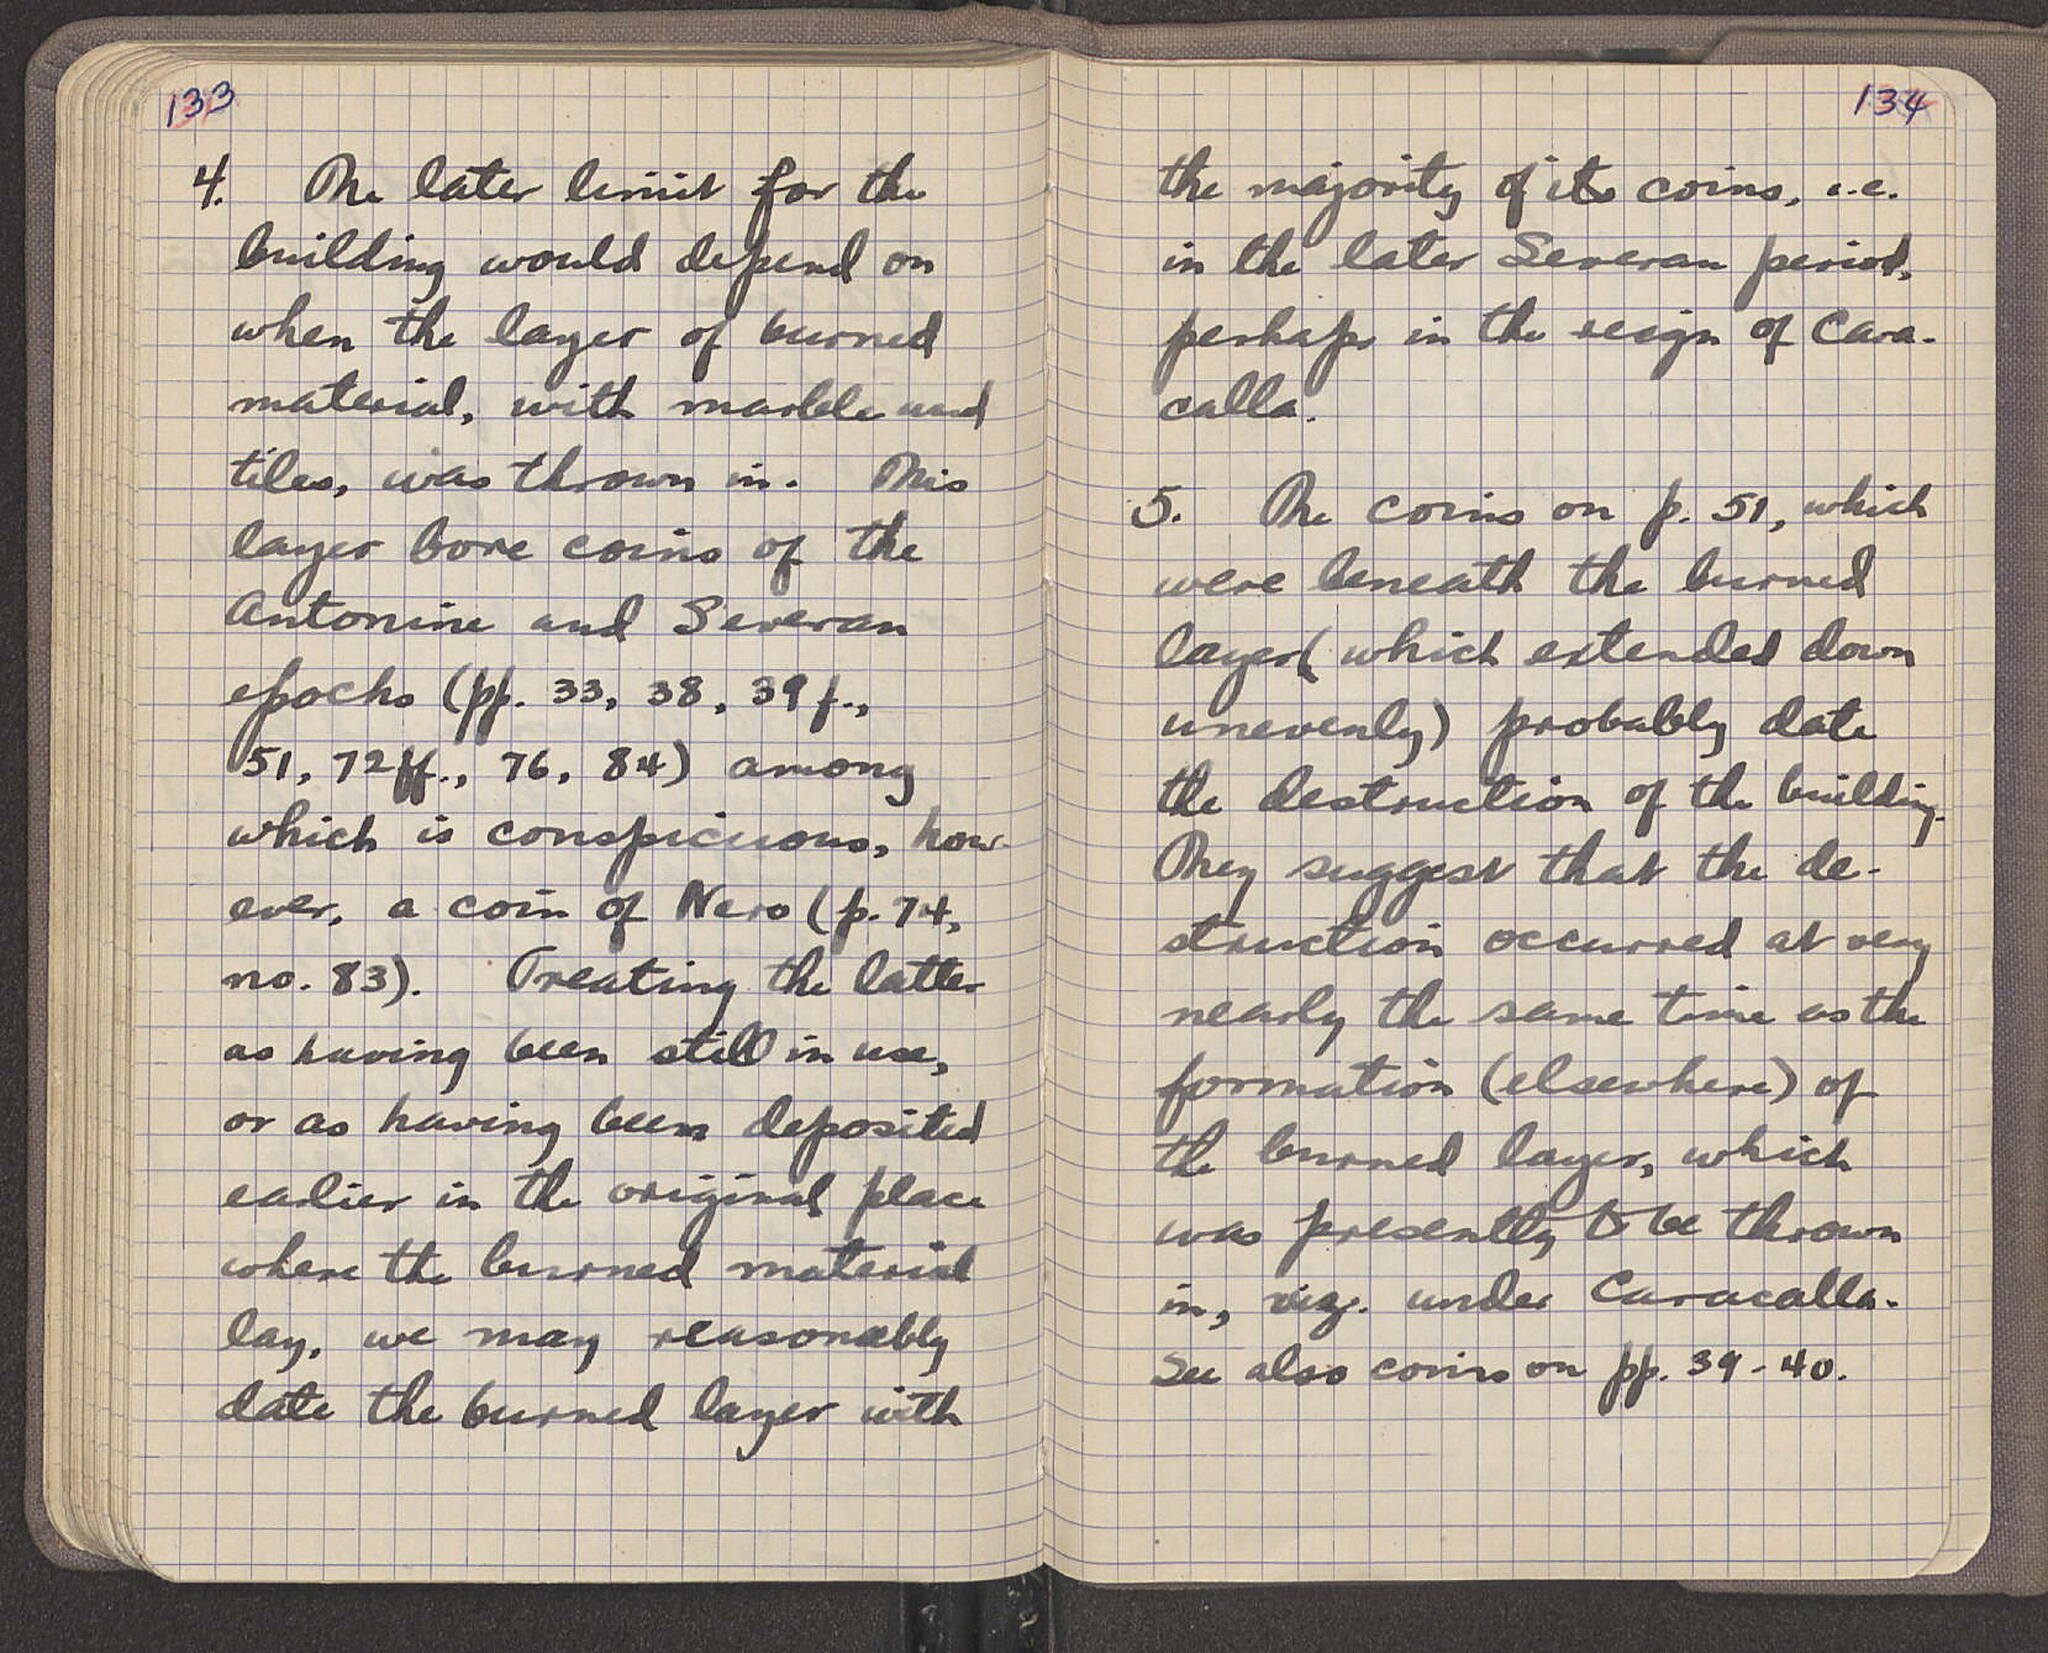 133
4. The later limit for the
building would depend on
when the layer of burned
material, with marble and
tiles, was thrown in. This
layer bore coins of the
Antonine and Severan
epochs (pp. 33, 38, 39f.,
51, 72ff., 76, 84) among
which is conspicuous, how-
ever, a coin of Nero (p. 74,
no. 83). Treating the latter
as having been still in use,
or as having been deposited
earlier in the original place
where the burned material
lay, we may reasonably
date the burned layer with
134
the majority of its coins, i.e.
in the later Severan period,
perhaps in the reign of Cara-
calla.
5. The coins on p. 51, which
were beneath the burned
layer (which extended down
unevenly) probably date
the destruction of the building.
They suggest that the de-
struction occurred at very
nearly the same time as the
formation (elsewhere) of
the burned layer, which
was presently to be thrown
in, viz. under Caracalla.
See also coins on pp. 39-40.